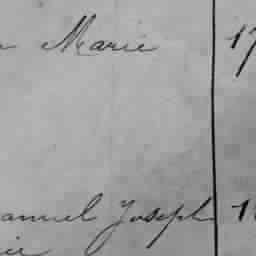 Marie 17
anuel Joseph 1